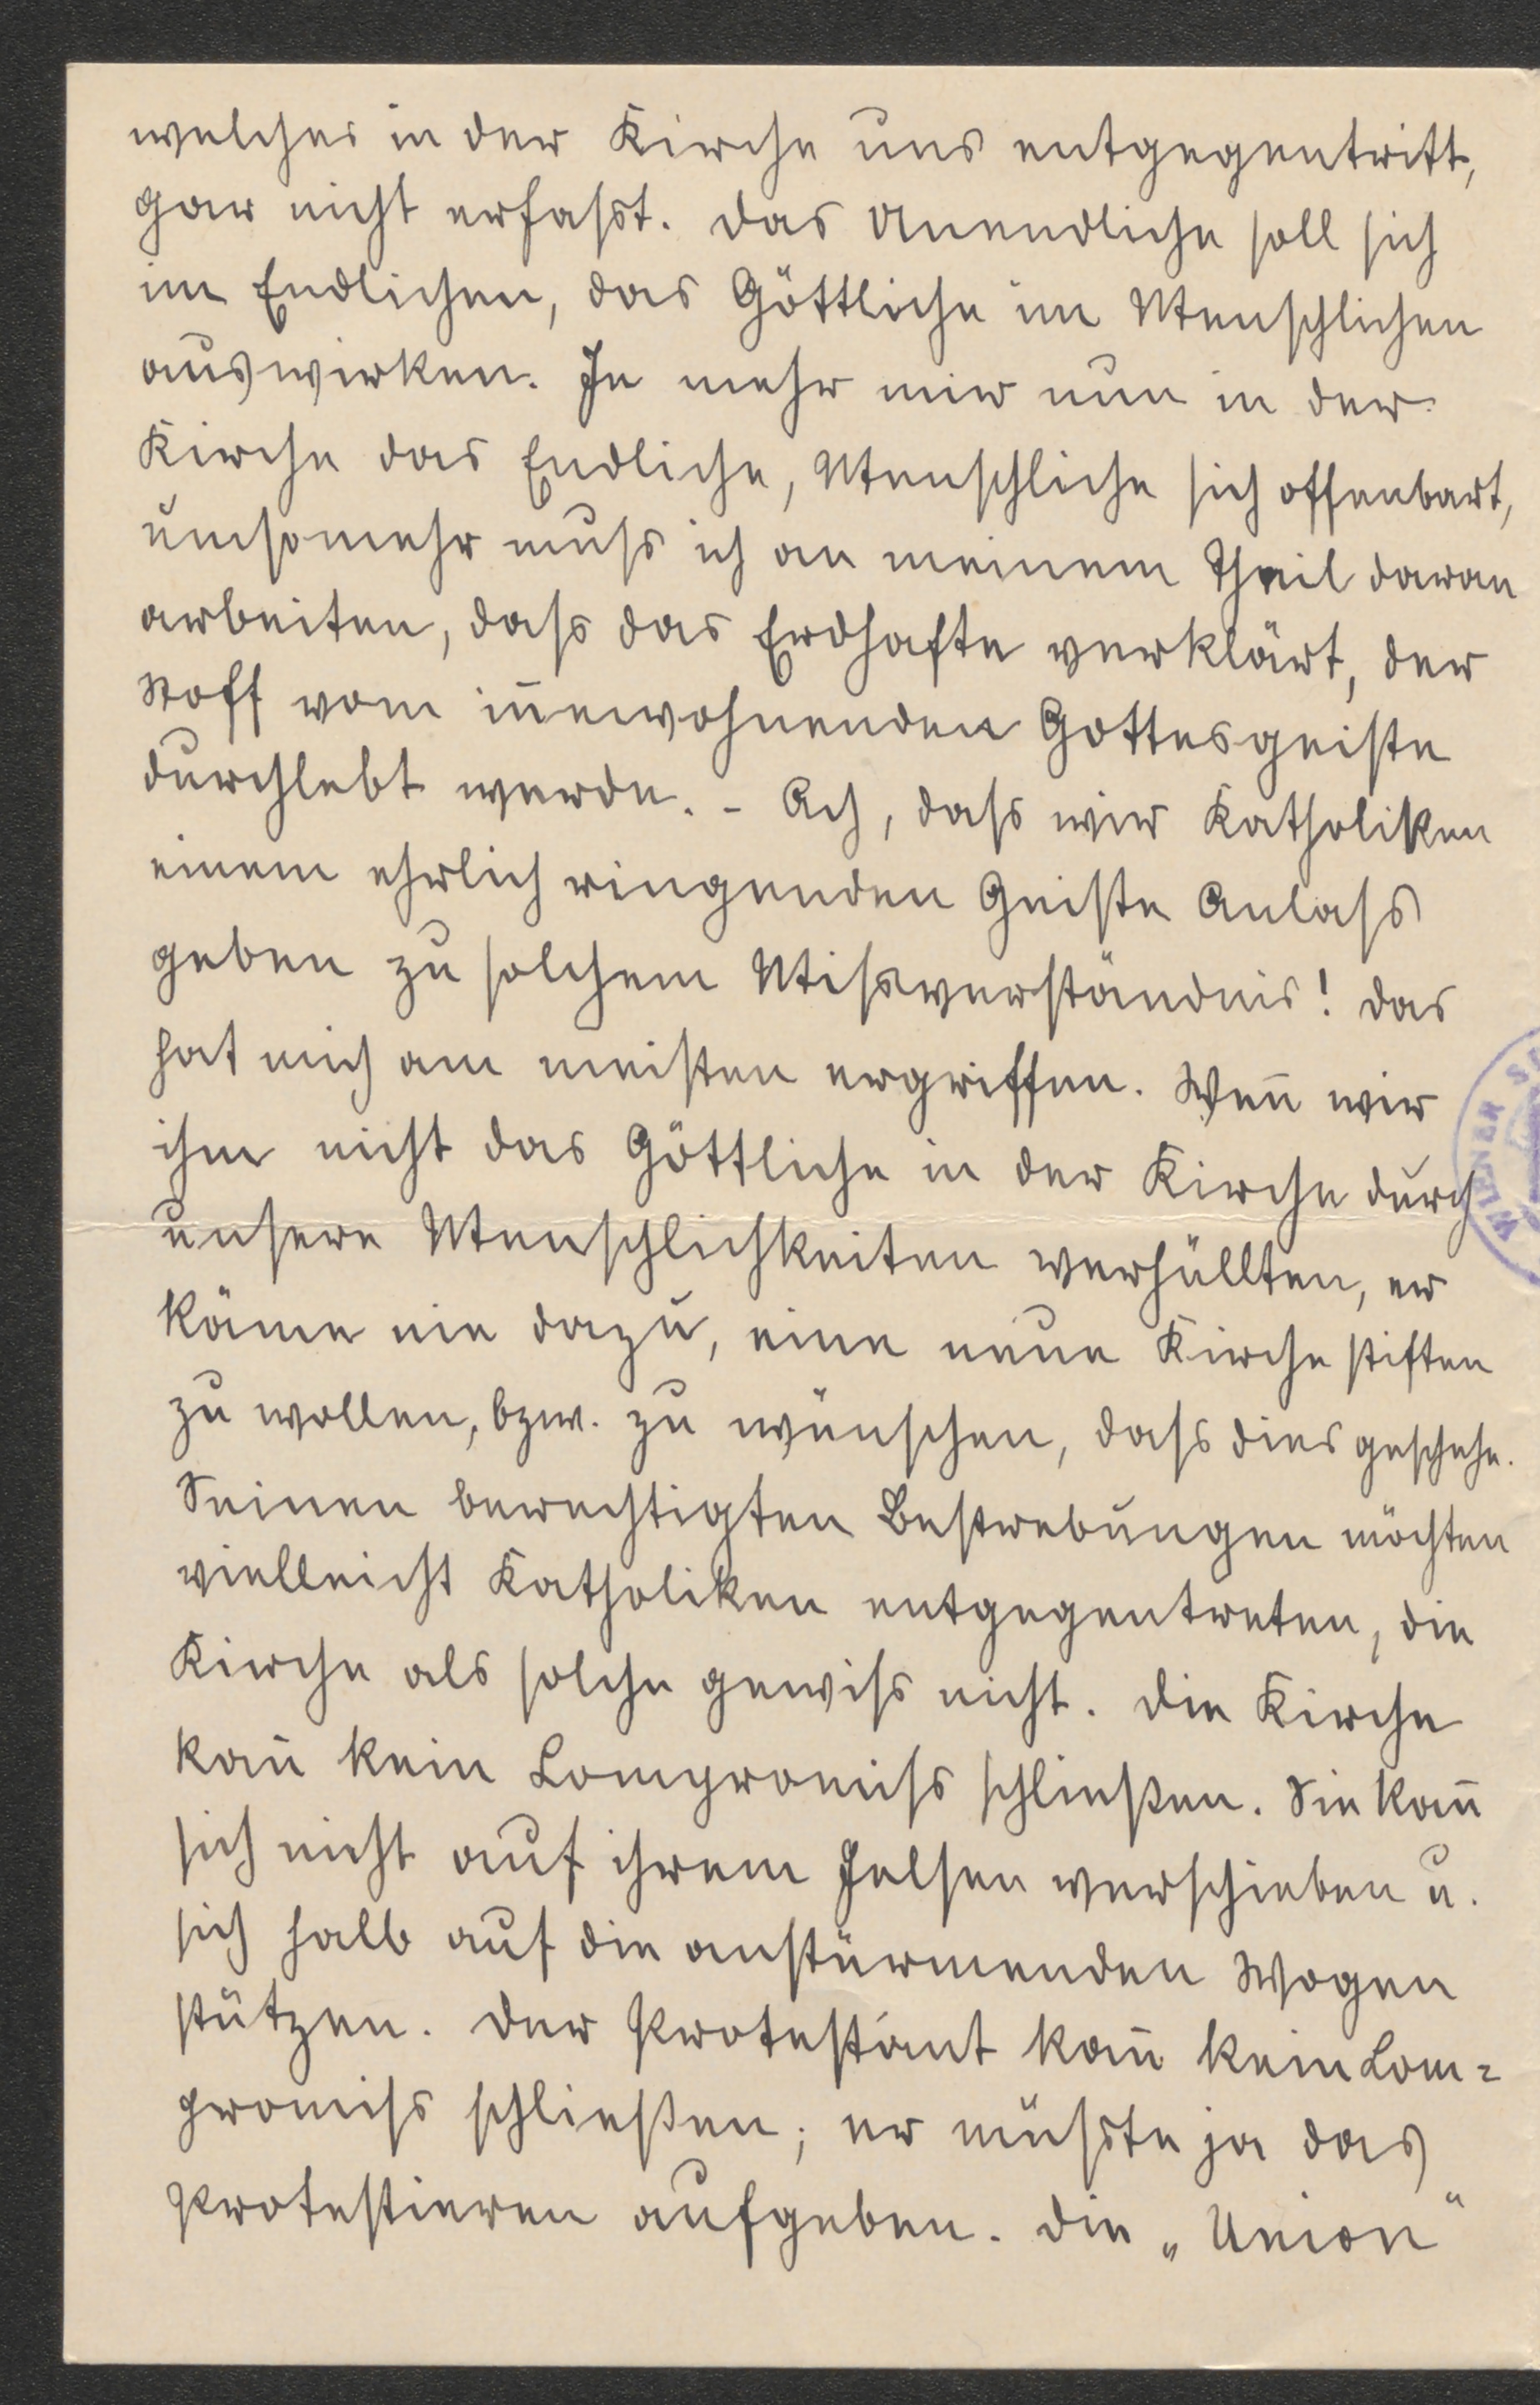 welches in der Kirche uns entgegentritt,
gar nicht erfasst. Das Unendliche soll sich
im Endlichen, das Göttliche im Menschlichen
auswirken. Je mehr mir nun in der
Kirche das Endliche, Menschliche sich offenbart,
umsomehr muss ich an meinem Theil daran
arbeiten, dass das Erdhafte verklärt, der
Stoff vom in̄ewohnenden Gottesgeiste
durchlebt werde. – Ach, dass wir Katholiken
einem ehrlich ringenden Geiste Anlass
geben zu solchem Missverständnis! Das
hat mich am meisten ergriffen. Wen̄ wir
ihm nicht das Göttliche in der Kirche durch
unsere Menschlichkeiten verhüllten, er
käme nie dazu, eine neue Kirche stiften
zu wollen, bzw. zu wünschen, dass dies geschehe.
Seinen berechtigten Bestrebungen möchten
vielleicht Katholiken entgegentreten, die
Kirche als solche gewiss nicht. Die Kirche
kan̄ kein Compromiss schließen. Sie kan̄
sich nicht auf ihrem Felsen verschieben u.
sich halb auf die anstürmenden Wogen
stützen. Der Protestant kan̄ kein Com=
promiss schließen; er müsste ja das
Protestieren aufgeben. Die „Union"
WIENER S